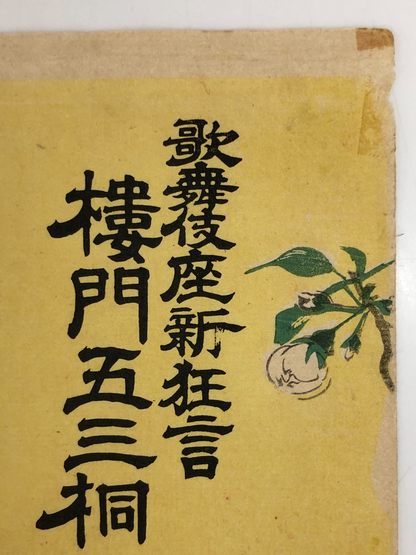 歌舞伎座新狂言
樓門五三桐